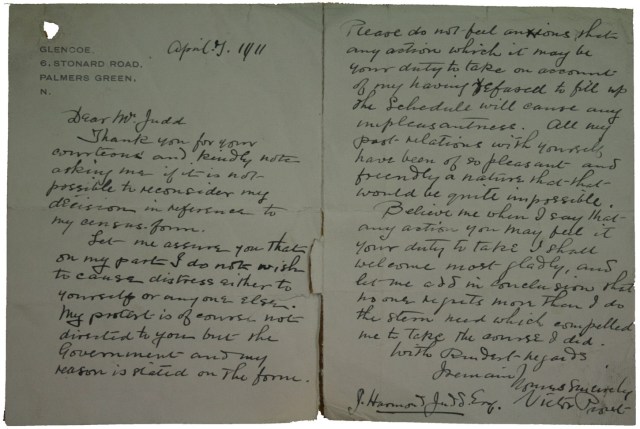 GLENCOE,
6, STONARD ROAD,
PALMERS GREEN,
N.
April 5. 1911
Dear Mr Judd
Thank you for your
courteous and kindly note
asking me if it is not
possible to reconsider my
decision in reference to
my census form.
Let me assure you that
on my part I do not wish
to cause distress either to
yourself or anyone else.
My protest is of course not
directed to you but the
Government and my
reason is stated on the form.
Please do not feel anxious that
any action which it may be
your duty to take on account
of my having refused to fill up
the Schedule will cause any
unpleasantness. All my
past relations with yourself
have been of so pleasant and
friendly a nature that that
would be quite impossible.
Believe me when I say that
any action you may feel it
your duty to take I shall
welcome most gladly, and
let me add in conclusion that
no one regrets more than I do
the stern need which compelled
me to take the course I did.
With kindest regards
I remain
Yours sincerely
Victor Prout
J. Harmond Judd Esq.